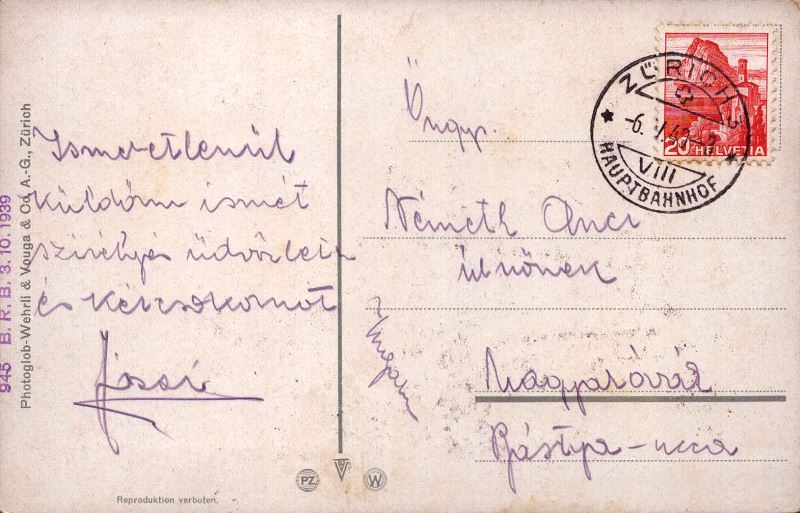 945 B. R. B. 3. 10. 1939
Photoglob-Wehrli & Vouga & Co. A.-G., Zürich
Ismeretlenül
küldöm ismét
szivélyes üdvözletem
és kézcsokomat
Jóssi
Reproduktion verboten.
PZ
W
ZÜRICH 2
-6. 42
VIII
HAUPTBAHNHOF
20 HELVETIA
Öngy.
Németh Anci
úrnőnek
Magyaróvár
Bástya-ucca
Ungarn